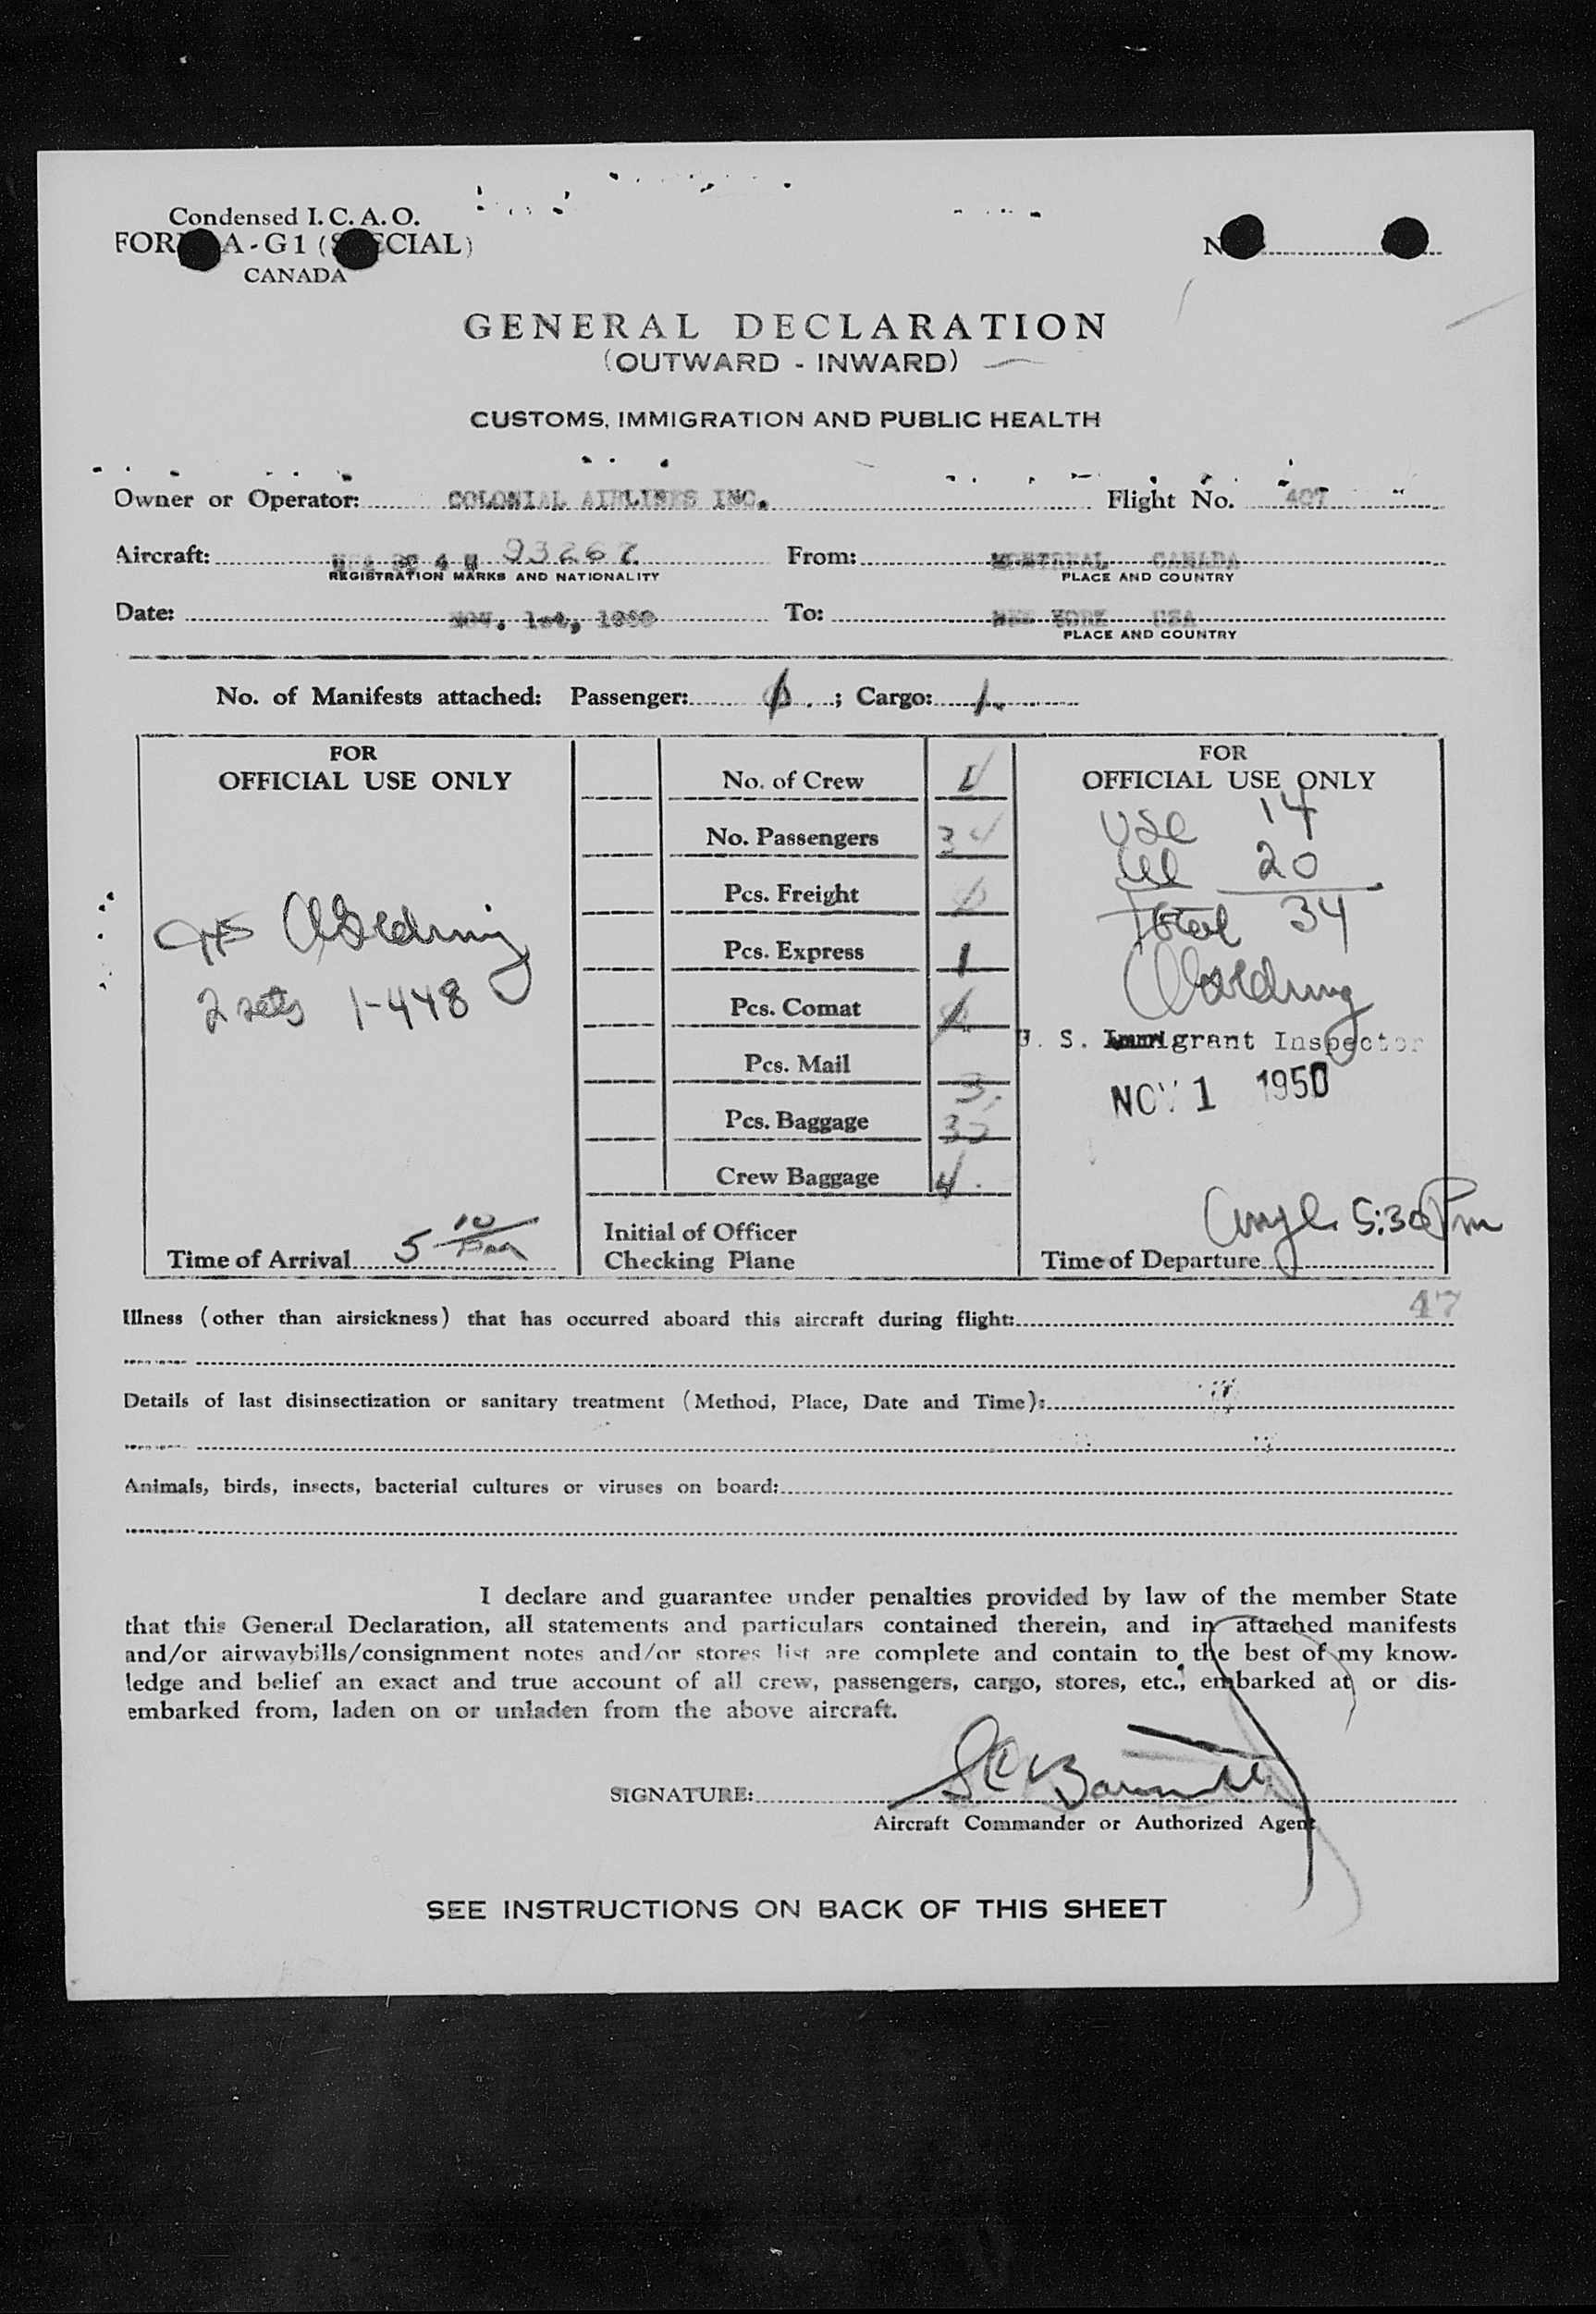 Condensed I. C. A. O.
FORM A-G1 (SPECIAL)
CANADA
GENERAL DECLARATION
(OUTWARD - INWARD)
CUSTOMS, IMMIGRATION AND PUBLIC HEALTH
Owner or Operator: COLONIAL AIRLINES INC. Flight No. 407
Aircraft: DC 4 N 93267 From: MONTREAL CANADA
REGISTRATION MARKS AND NATIONALITY PLACE AND COUNTRY
Date: NOV. 1st, 1950 To: NEW YORK USA
PLACE AND COUNTRY
No. of Manifests attached: Passenger: ; Cargo: 1.
FOR
OFFICIAL USE ONLY
2 sets 1-448
Time of Arrival 5 10
No. of Crew
No. Passengers 34
Pcs. Freight
Pcs. Express 1
Pcs. Comat
Pcs. Mail 3
Pcs. Baggage
Crew Baggage 4.
Initial of Officer
Checking Plane
FOR
OFFICIAL USE ONLY
USC 14
20
Total 34
U. S. Immigrant Inspector
NOV 1 1950
5:30 Pm
Time of Departure
47
Illness (other than airsickness) that has occurred aboard this aircraft during flight:
Details of last disinsectization or sanitary treatment (Method, Place, Date and Time):
Animals, birds, insects, bacterial cultures or viruses on board:
I declare and guarantee under penalties provided by law of the member State
that this General Declaration, all statements and particulars contained therein, and in attached manifests
and/or airwaybills/consignment notes and/or stores list are complete and contain to the best of my know-
ledge and belief an exact and true account of all crew, passengers, cargo, stores, etc., embarked at or dis-
embarked from, laden on or unladen from the above aircraft.
SIGNATURE:
Aircraft Commander or Authorized Agent
SEE INSTRUCTIONS ON BACK OF THIS SHEET